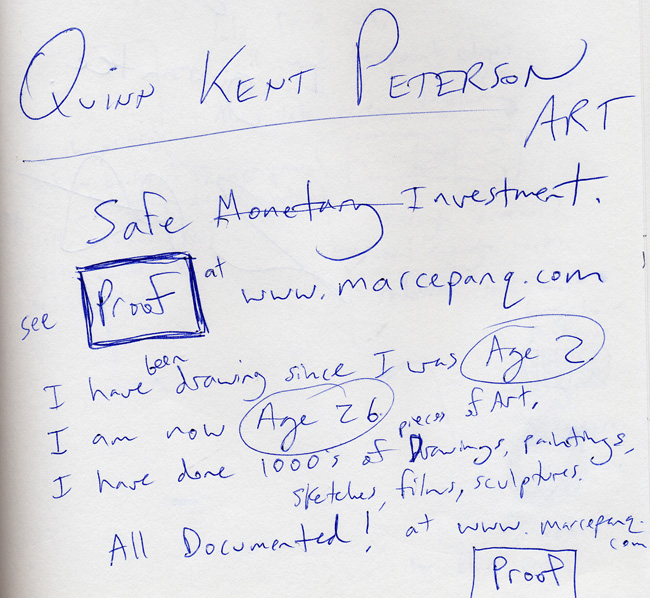 QUINN KENT PETERSON
ART
Safe Monetary Investment.
see Proof at www.marcepanq.com
I have been drawing since I was Age 2
I am now Age 26.
I have done 1000's of pieces of Art,
Drawings, paintings,
sketches, films, sculptures.
All Documented! at www.marcepanq.com
Proof